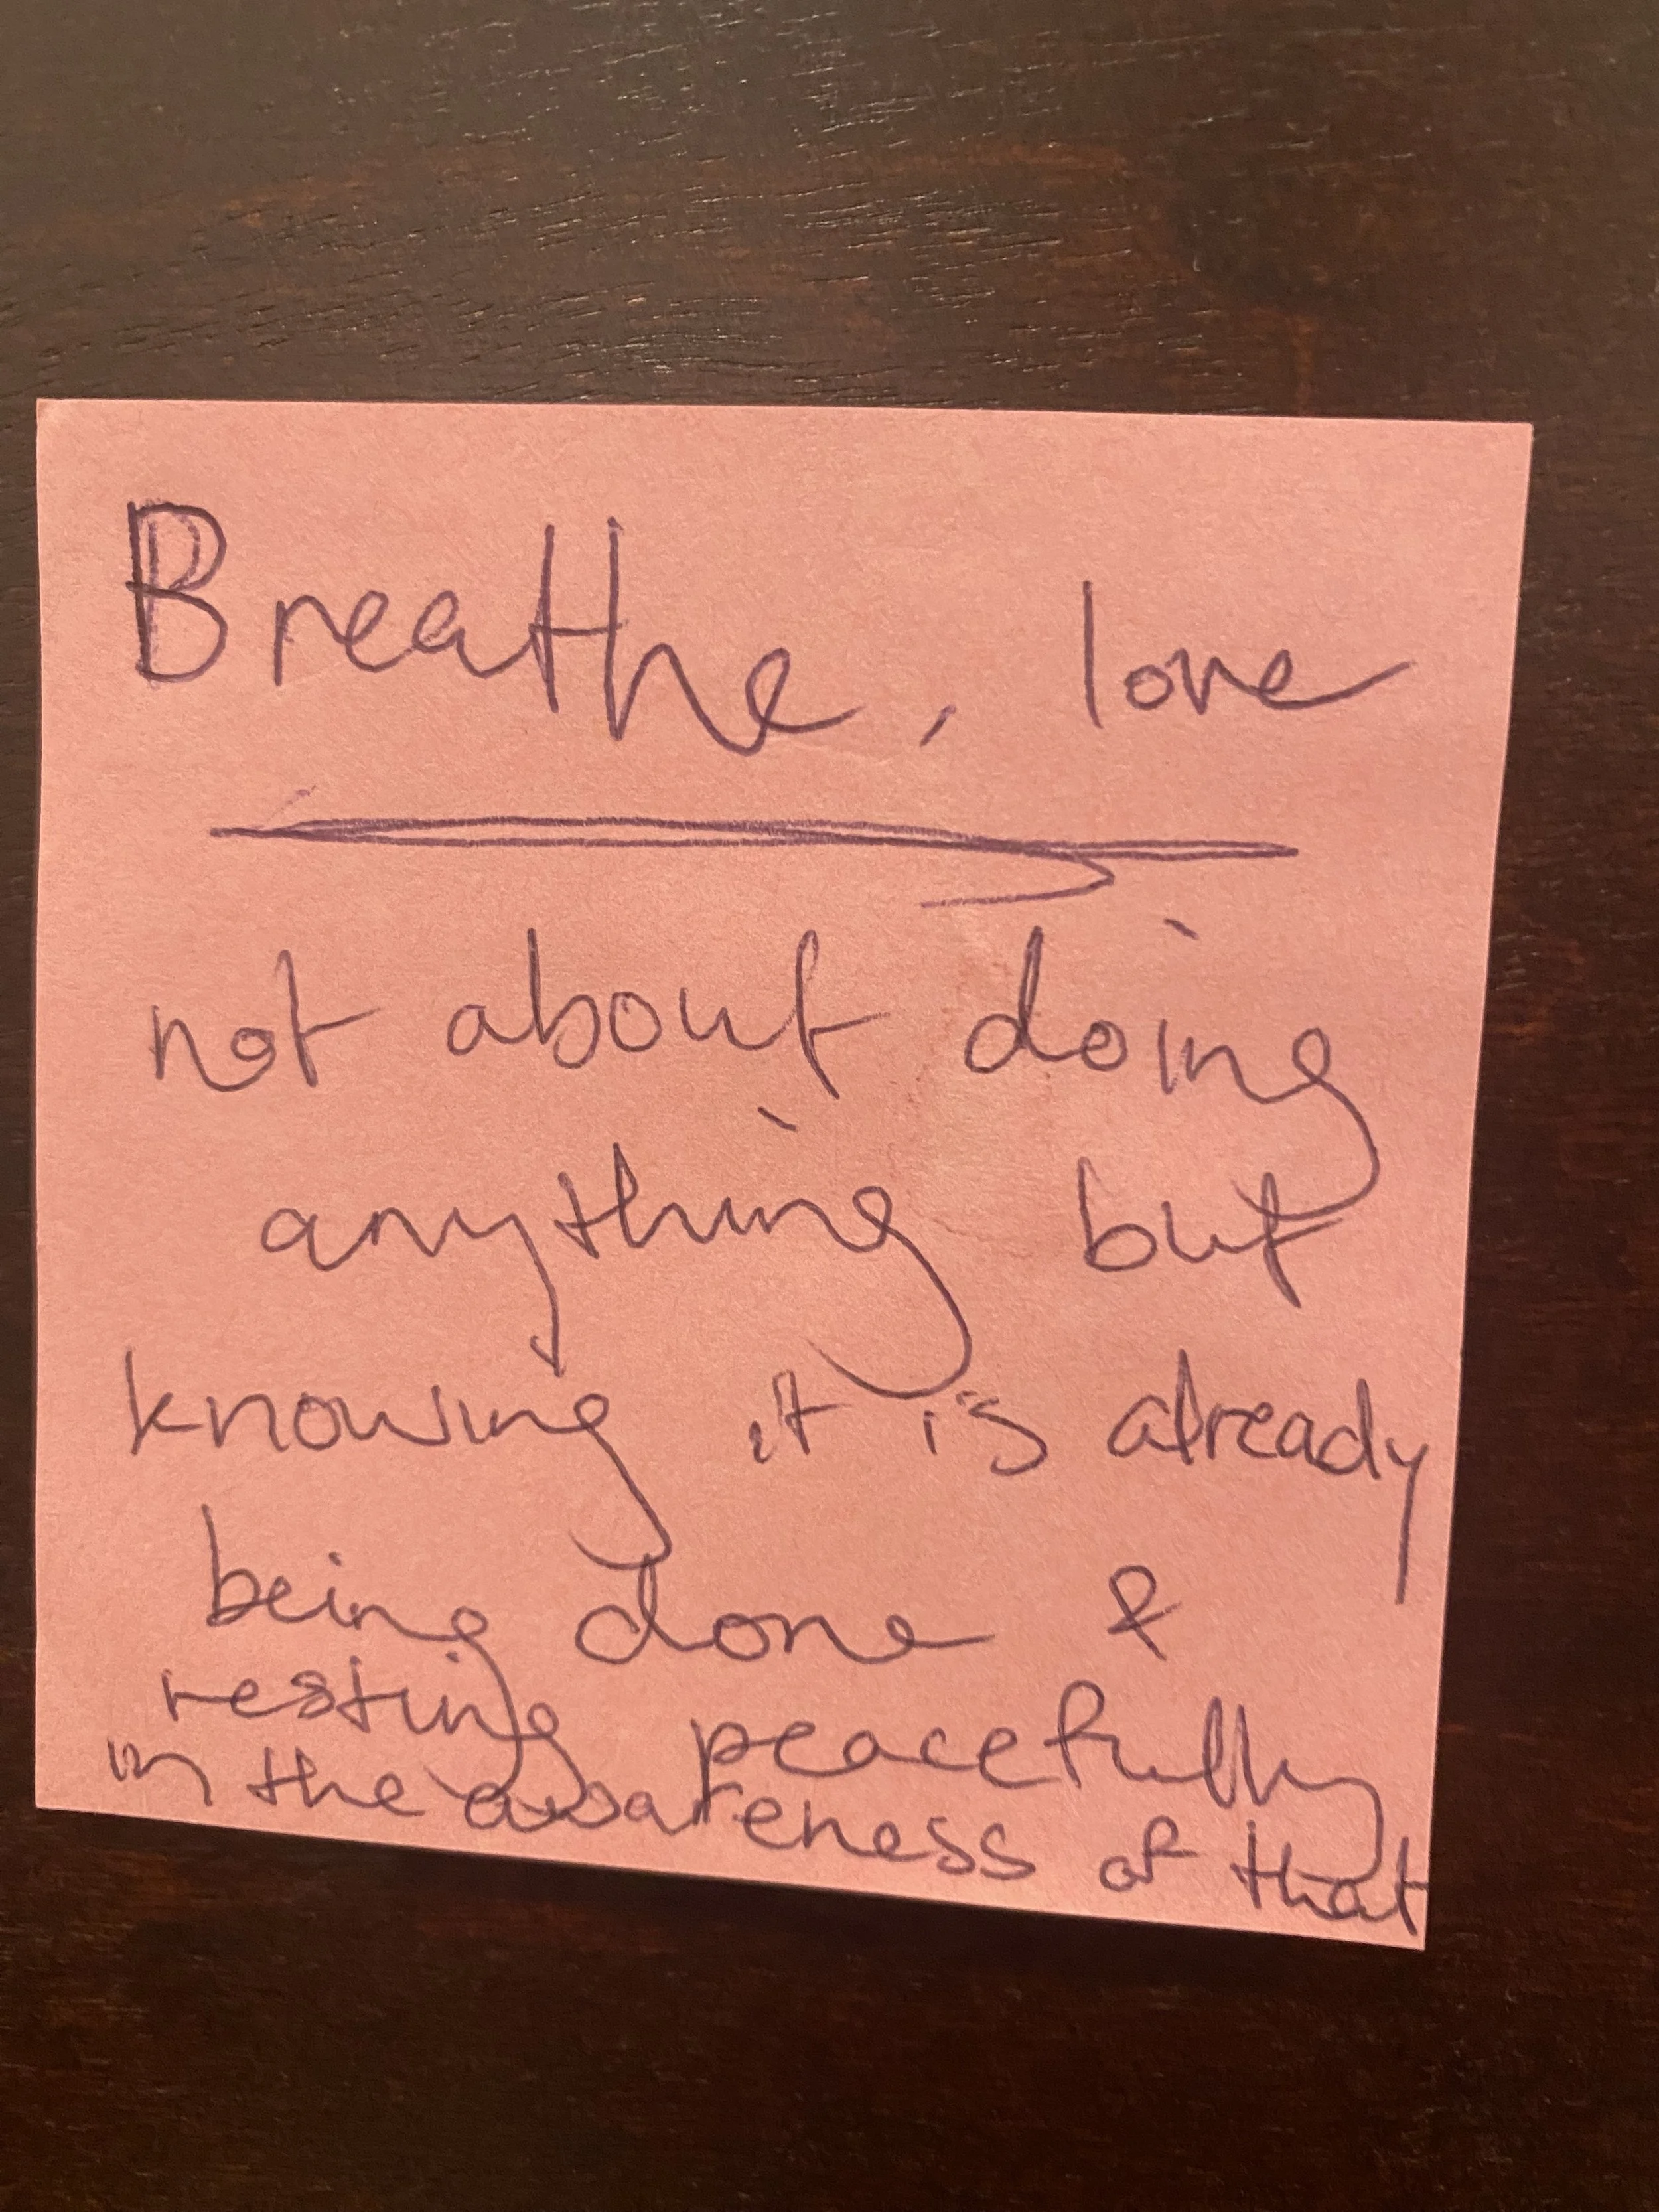 Breathe, love
not about doing
anything but
knowing it is already
being done &
resting peacefully
in the awareness of that